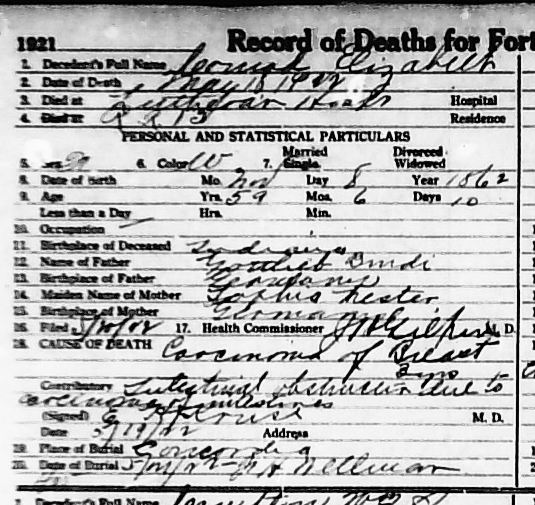 1921 Record of Deaths for Fort
1. Decedent's Full Name Elizabeth
2. Date of Death May 18 1922
3. Died at Lutheran Hosp Hospital
4. Died at R R 13 Residence
PERSONAL AND STATISTICAL PARTICULARS
5. Sex 6. Color W 7. Married Single Divorced Widowed
8. Date of Birth Mo. Nov Day 8 Year 1862
9. Age Yrs. 59 Mos. 6 Days 10
Less than a Day Hrs. Min.
10. Occupation —
11. Birthplace of Deceased Indiana
12. Name of Father Gottlieb
13. Birthplace of Father Germany
14. Maiden Name of Mother Sophia Nester
15. Birthplace of Mother Germany
16. Filed 5/20/22 17. Health Commissioner M. D.
18. CAUSE OF DEATH Carcinoma of Breast
Contributory Intestinal obstruction due to
carcinoma of intestines
(Signed) M. D.
Date 5/19/22 Address
19. Place of Burial Concordia
20. Date of Burial Wellman
1. Decedent's Full Name